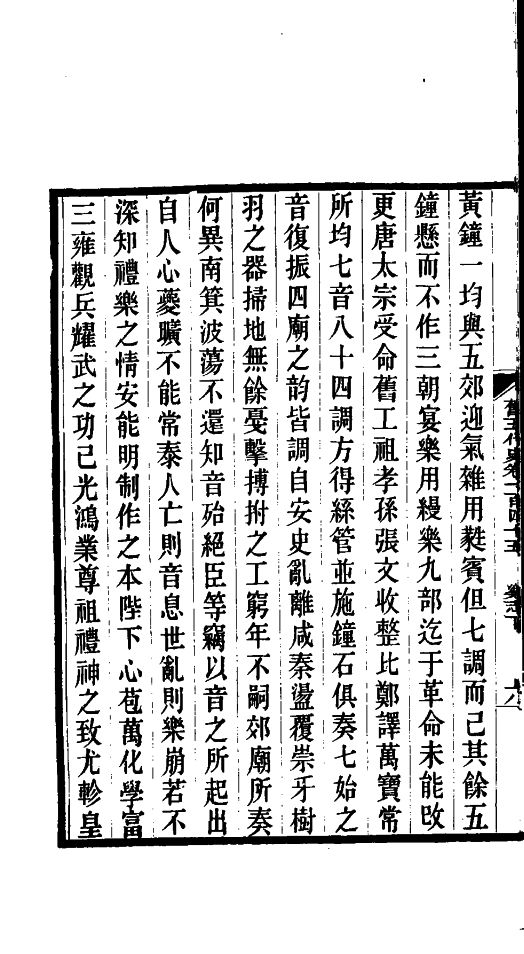 黃鐘一均與五郊迎氣雜用蕤賓但七調而已其餘五
鐘懸而不作三朝宴樂用縵樂九部迄于革命未能改
更唐太宗受命舊工祖孝孫張文收整比鄭譯萬寶常
所均七音八十四調方得絲管並施鐘石俱奏七始之
音復振四廟之韵皆調自安史亂離咸秦盪覆崇牙樹
羽之器掃地無餘戞擊搏拊之工窮年不嗣郊廟所奏
何異南箕波蕩不還知音殆絕臣等竊以音之所起出
自人心夔曠不能常泰人亡則音息世亂則樂崩若不
深知禮樂之情安能明制作之本陛下心苞萬化學富
三雍觀兵耀武之功已光鴻業尊祖禮神之致尤軫皇